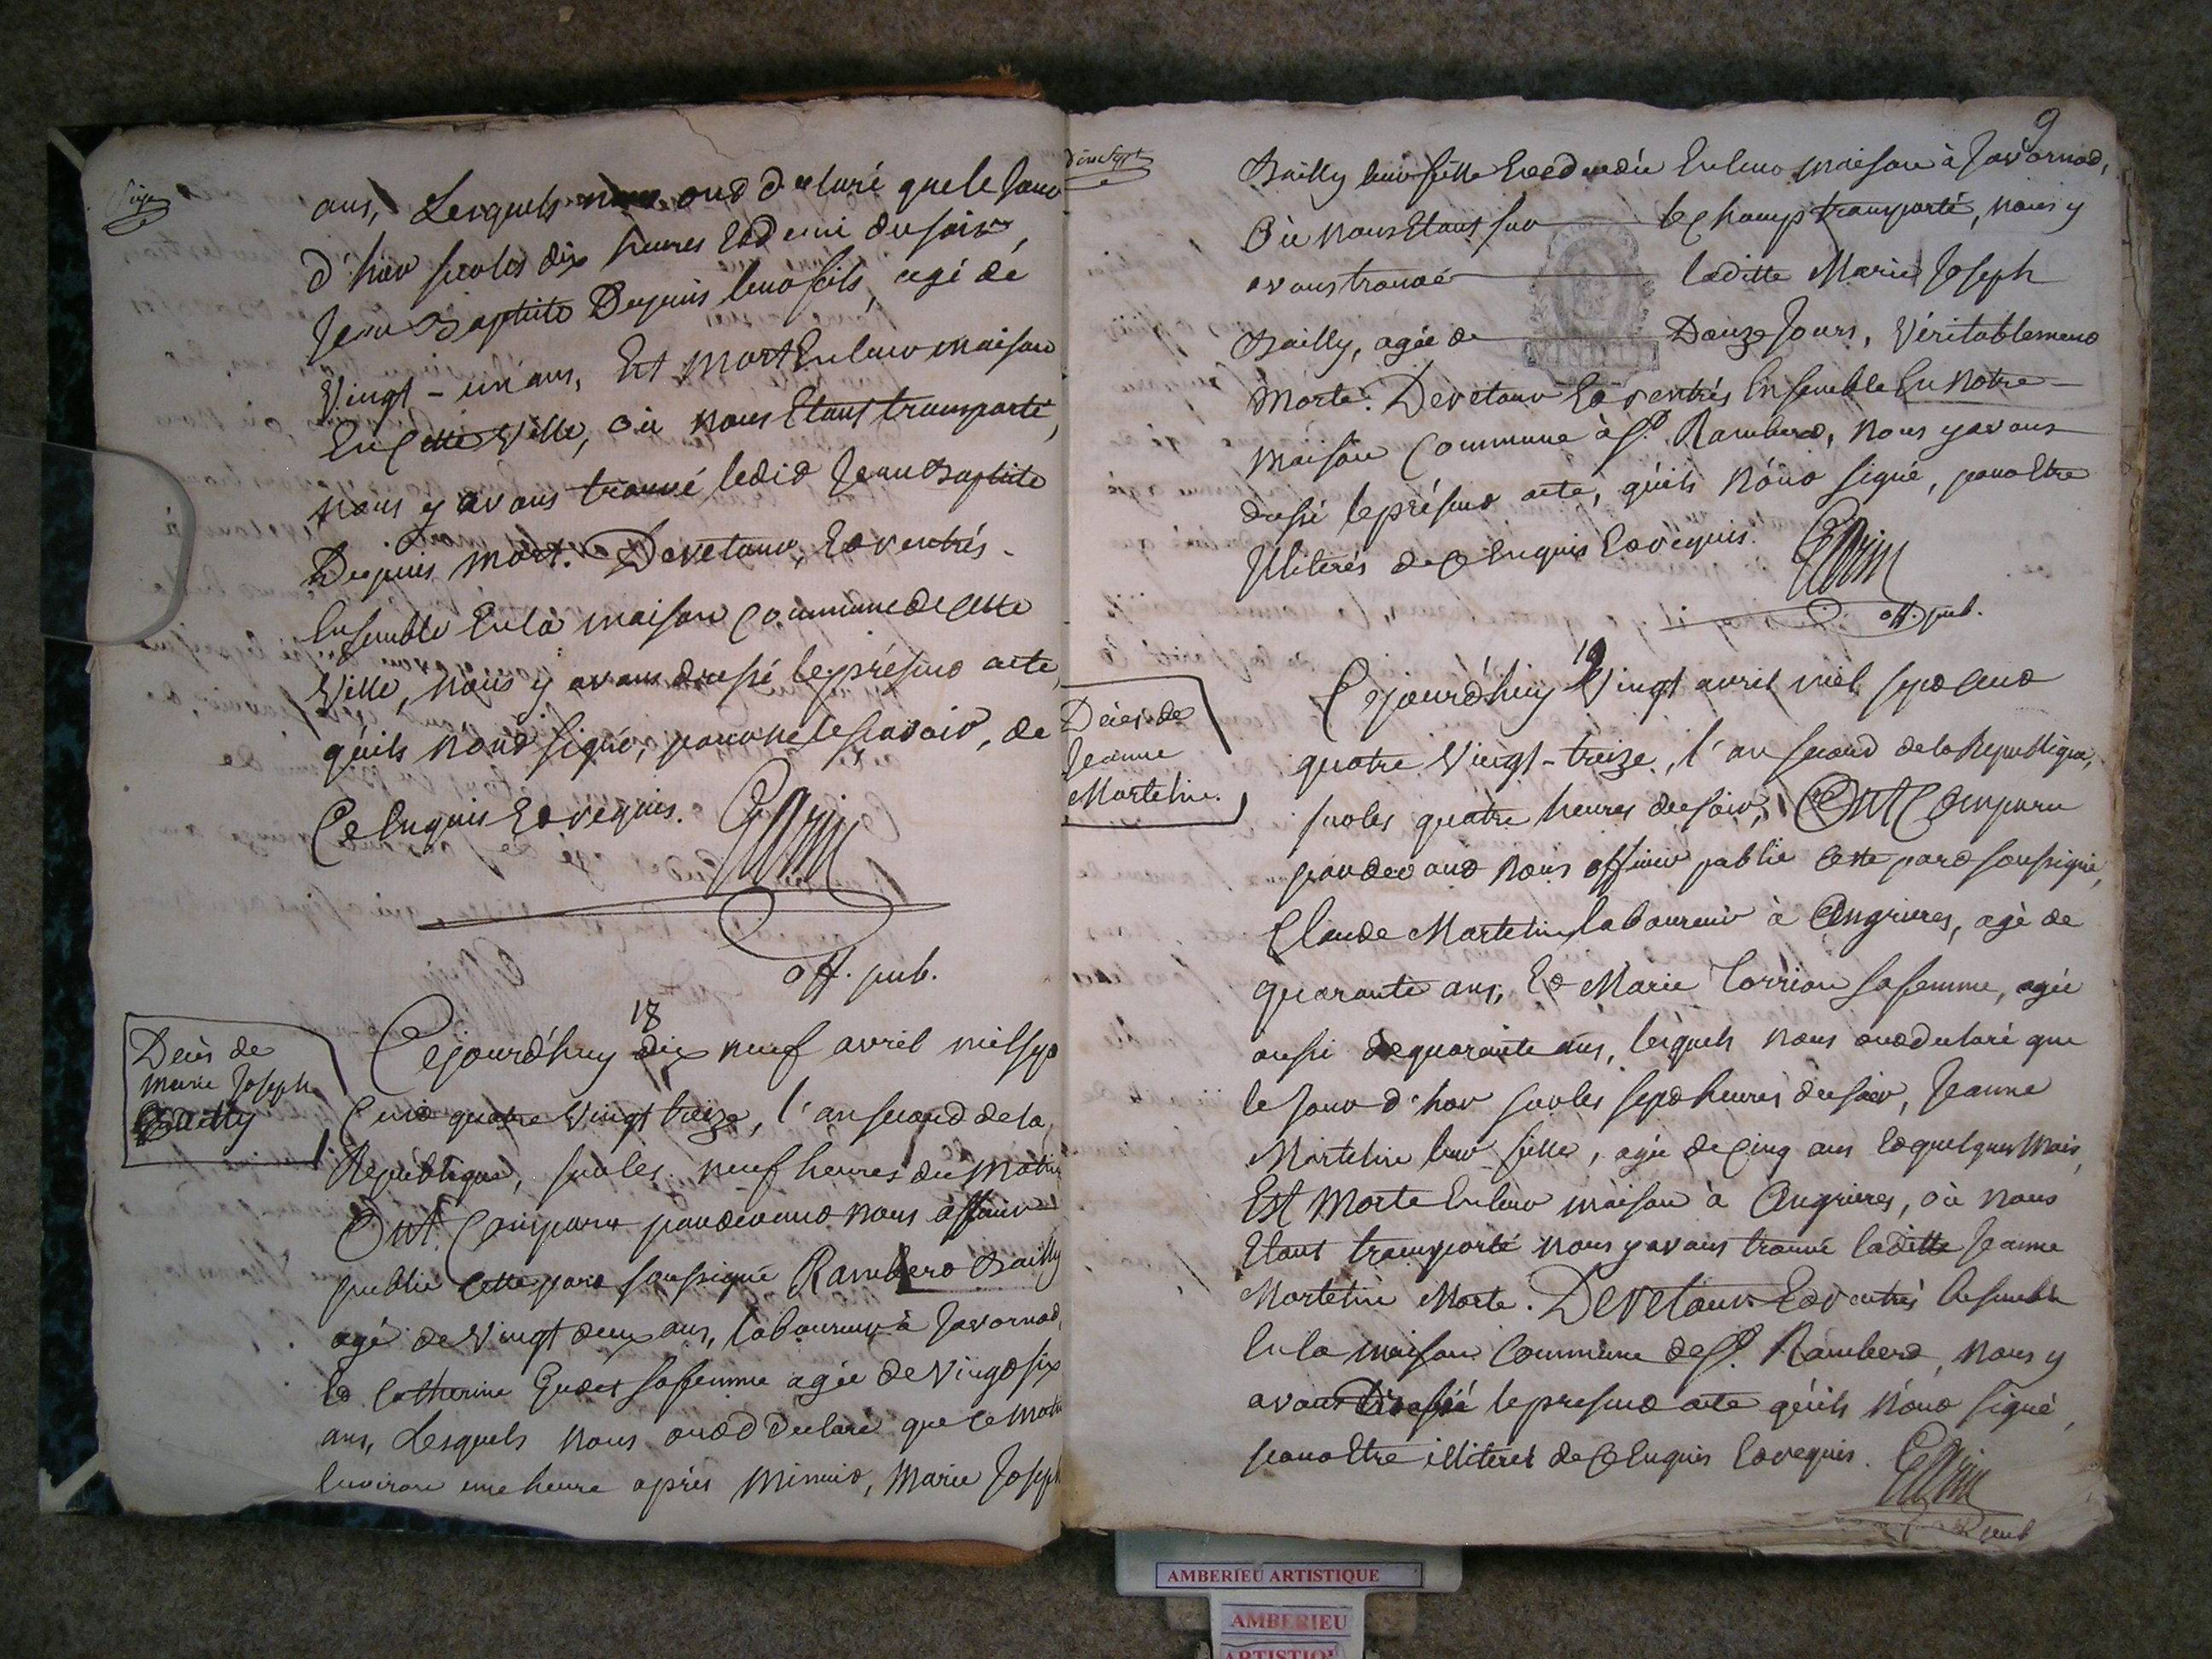 ans, Lesquels nous ont déclaré que le jour
d'hier sur les dix heures et demi du soir,
Jean Baptiste Dupuis leur fils, agé de
Vingt-un ans, Est mort En leur maison
En Cette Ville, où nous Etant transporté,
nous y avons trouvé ledit Jean Baptiste
Dupuis mort. De retour, Et rentrés
Ensemble En la maison Commune de Cette
Ville, nous y avons dressé le présent acte,
qu'ils n'ont signé, pour ne le sçavoir, de
Ce Enquis Et requis.
off. pub.
Décès de
marie Joseph
Bailly
18
Cejourd'huy dix neuf avril mil sept
Cent quatre Vingt treize, l'an second de la
République, sur les neuf heures du Matin
Ont Comparu pardevant nous officier
public Cette part soussigné Rambert Bailly
agé de Vingt deux ans, laboureur à Javornod,
Et Catherine sa femme agée de Vingt six
ans, Lesquels nous ont déclaré que ce matin
Environ une heure après Minuit, Marie Joseph
9
Bailly leur fille Est décédée En leur maison à Javornod,
Où nous Etant sur le champ transporté, nous y
avons trouvé laditte Marie Joseph
Bailly, agée de Douze Jours, Véritablement
Morte. De retour Et rentrés Ensemble En notre
maison Commune à St. Rambert, nous y avons
dressé le présent acte, qu'ils n'ont signé, pour Etre
Illiterés de Ce Enquis Et requis.
off. pub.
Décès de
Jeanne
Martelin.
19
Cejourd'huy Vingt avril mil sept Cent
quatre Vingt-treize, l'an second de la République,
sur les quatre heures du soir, Ont Comparu
pardevant nous officier public Cette part soussigné,
Claude Martelin laboureur à Angrieres, agé de
quarante ans, Et Marie Corrion sa femme, agée
aussi de quarante ans, lesquels nous ont déclaré que
le Jour d'hier sur les sept heures du soir, Jeanne
Martelin leur fille, agée de Cinq ans Et quelques Mois,
Est Morte En leur maison à Angrieres, où nous
Etant transporté nous y avons trouvé laditte Jeanne
Martelin Morte. De retour Et rentrés Ensemble
En la maison Commune de St. Rambert, nous y
avons Dressé le present acte qu'ils n'ont signé,
pour Etre illiterés de Ce Enquis Et requis.
pub
AMBERIEU ARTISTIQUE
AMBERIEU
ARTISTIQUE